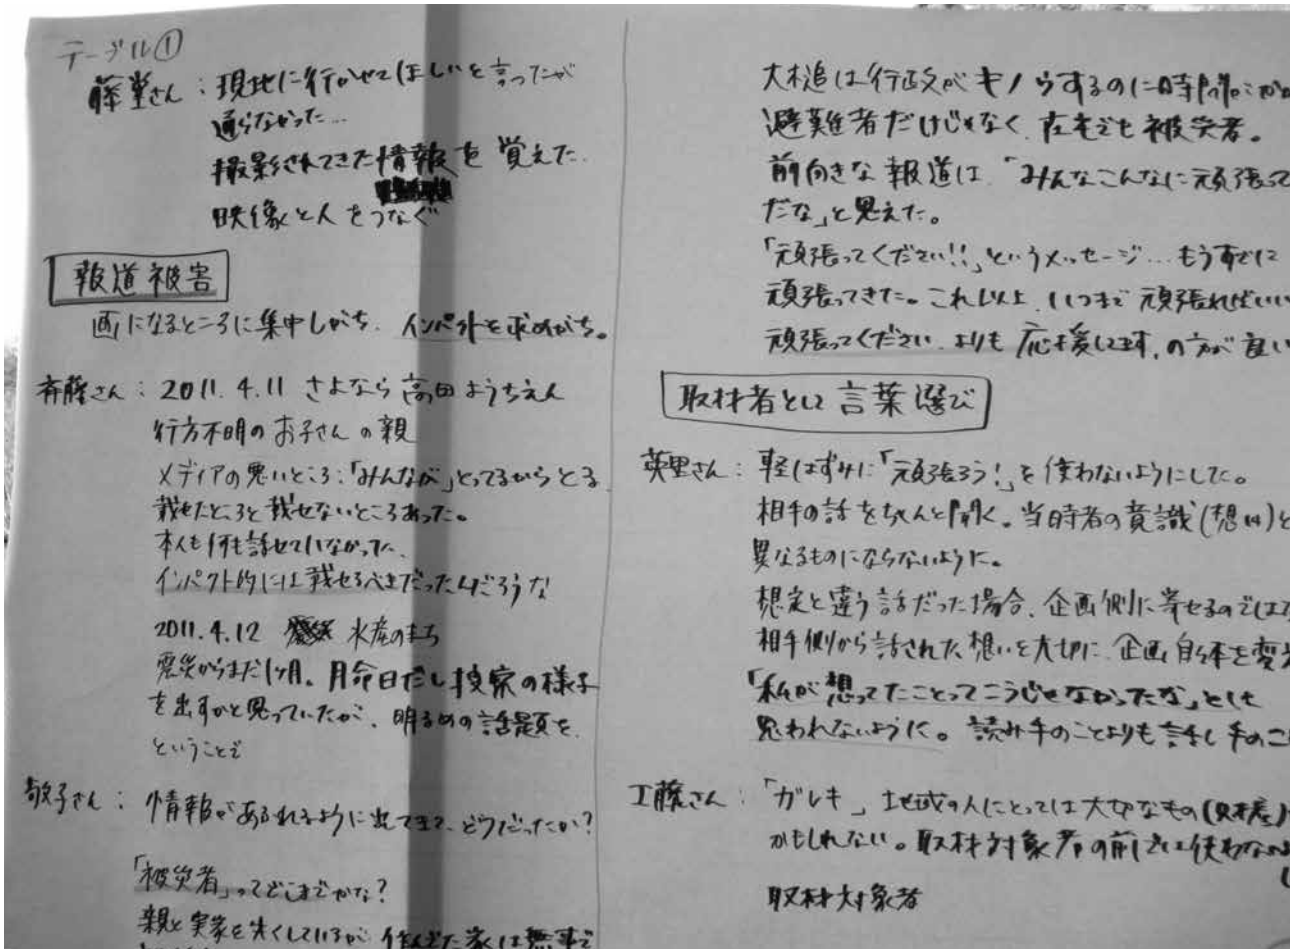 テーブル①
藤堂さん：現地に行かせてほしいと言ったが
通らなかった…
撮影されてきた情報を覚えた.
映像と人をつなぐ
報道被害
画になるところに集中しがち. インパクトを求めがち。
斉藤さん：2011.4.11 さよなら高田ようちえん
行方不明のお子さんの親
メディアの悪いところ：「みんなが」とってるからとる
載せたところと載せないところあった。
本人も何も話せていなかった.
インパクト的には載せるべきだったんだろうな
2011.4.12 水産のまち
震災からまだ1ヶ月。月命日だし捜索の様子
を出すかと思っていたが、明るめの話題を.
ということで
敬子さん：情報があふれるように出てきて、どうだったか？
「被災者」ってどこまでかな？
親と実家を失くしているが 住んでた家は無事で
大槌は行政がキノウするのに時間が
避難者だけじゃなく、在宅でも被災者。
前向きな報道は、「みんなこんなに頑張って
だな」と思えた。
「頑張ってください!!」というメッセージ…もうすでに
頑張ってきた。これ以上、いつまで頑張ればいい
頑張ってください、よりも 応援してます、の方が良い
取材者として言葉選び
英里さん：軽はずみに「頑張ろう!」を使わないようにした。
相手の話をちゃんと聞く。当時者の意識(想い)と
異なるものにならないように。
想定と違う話だった場合、企画側に寄せるのでは
相手側から話された想いを大切に、企画自体を変
「私が想ってたことってこうじゃなかったな」とは
思われないように。読み手のことよりも話し手のこ
工藤さん：「ガレキ」地域の人にとっては大切なもの(財産)
かもしれない。取材対象者の前では使わない
取材対象者